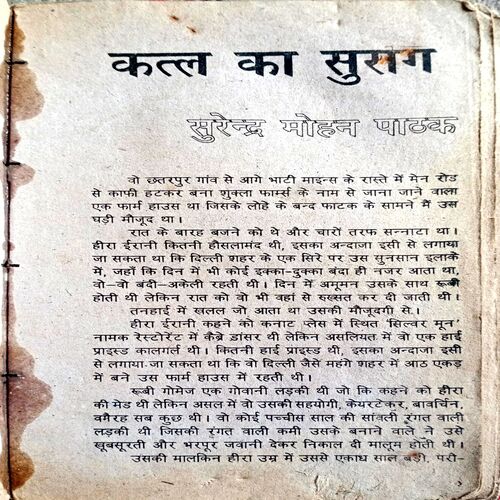 कत्ल का सुराग
सुरेन्द्र मोहन पाठक
वो छतरपुर गांव से आगे भाटी माइन्स के रास्ते में मेन रोड
से काफी हटकर बना शुक्ला फार्म्स के नाम से जाना जाने वाला
एक फार्म हाउस था जिसके लोहे के बन्द फाटक के सामने मैं उस
घड़ी मौजूद था।
रात के बारह बजने को थे और चारों तरफ सन्नाटा था।
हीरा ईरानी कितनी हौसलामंद थी, इसका अन्दाजा इसी से लगाया
जा सकता था कि दिल्ली शहर के एक सिरे पर उस सुनसान इलाके
में, जहाँ कि दिन में भी कोई इक्का-दुक्का बंदा ही नजर आता था,
वो—वो बंदी—अकेली रहती थी। दिन में अमूमन उसके साथ रूबी
होती थी लेकिन रात को वो भी वहां से रुख्सत कर दी जाती थी।
तनहाई में खलल जो आता था उसकी मौजूदगी से।
हीरा ईरानी कहने को कनाट प्लेस में स्थित 'सिल्वर मून'
नामक रेस्टोरेंट में कैब्रे डांसर थी लेकिन असलियत में वो एक हाई
प्राइस्ड कालगर्ल थी। कितनी हाई प्राइस्ड थी, इसका अन्दाजा इसी
से लगाया जा सकता था कि वो दिल्ली जैसे महंगे शहर में आठ एकड़
में बने उस फार्म हाउस में रहती थी।
रूबी गोमेज एक गोवानी लड़की थी जो कि कहने को हीरा
की मेड थी लेकिन असल में वो उसकी सहयोगी, केयरटेकर, बावर्चिन,
वगैरह सब कुछ थी। वो कोई पच्चीस साल की सांवली रंगत वाली
लड़की थी जिसकी रंगत वाली कमी उसके बनाने वाले ने उसे
खूबसूरती और भरपूर जवानी देकर निकाल दी मालूम होती थी।
उसकी मालकिन हीरा उम्र में उससे एकाध साल बड़ी, परी-